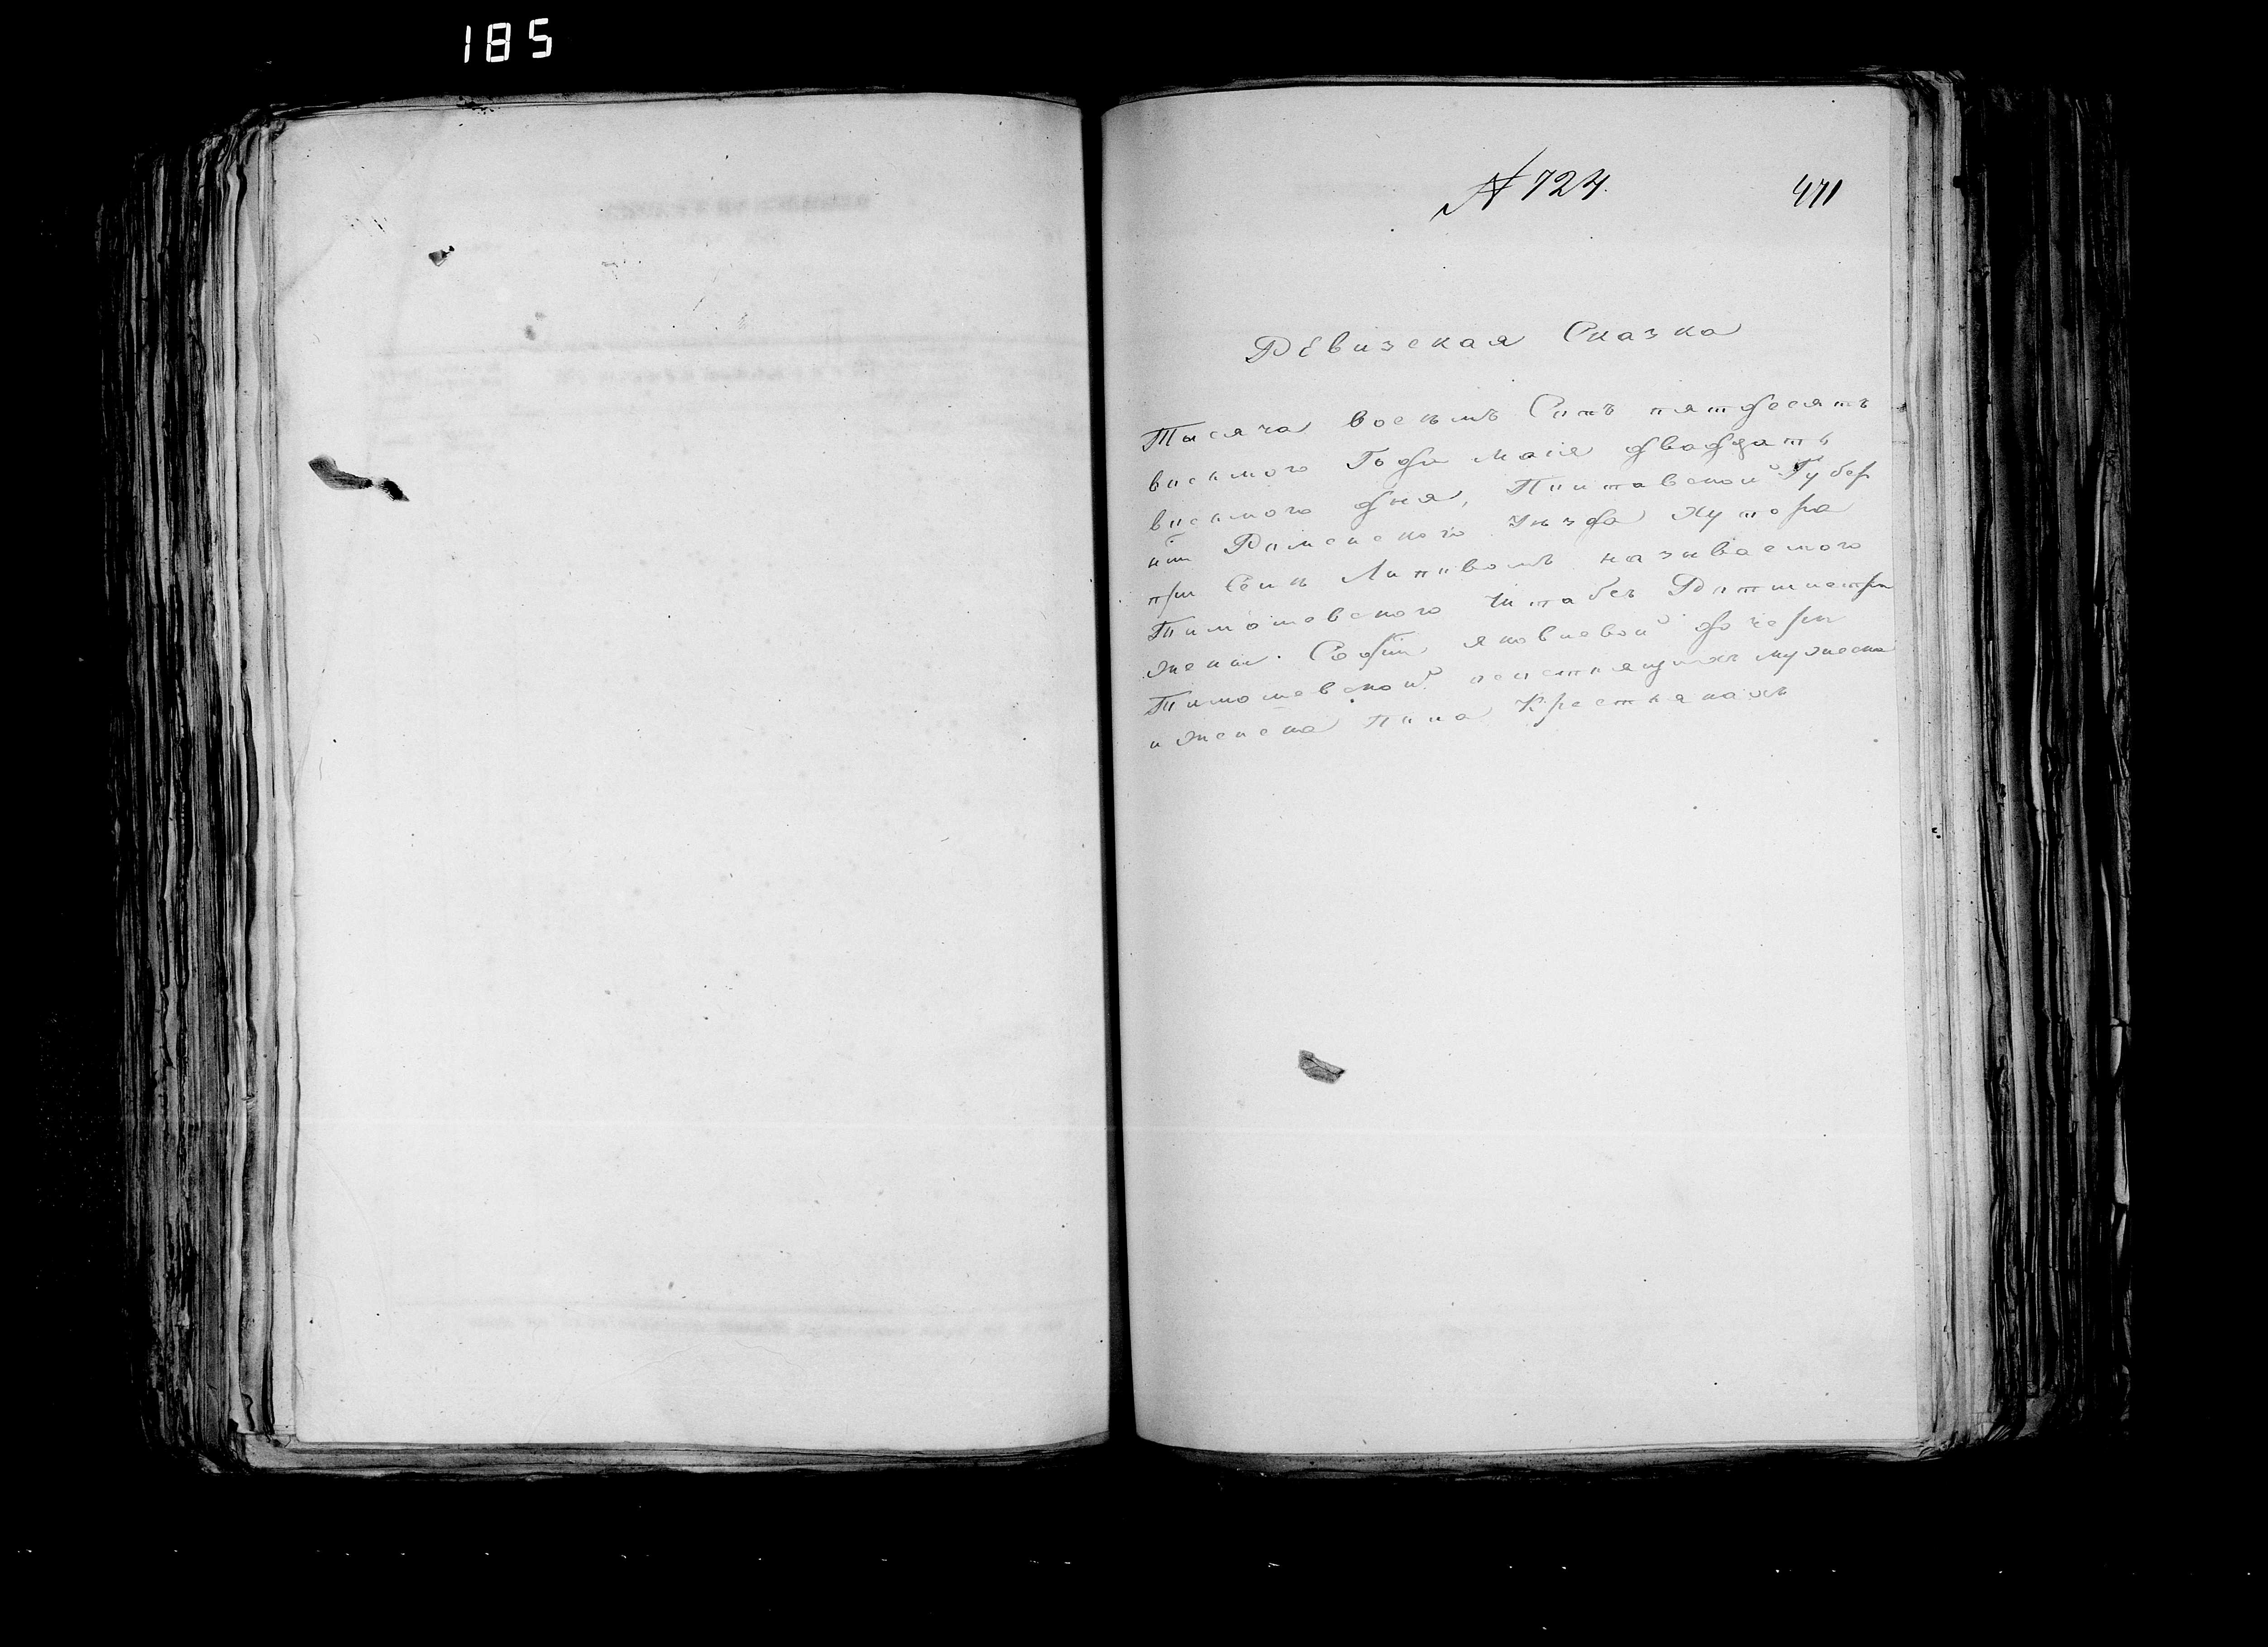 185
№ 724.
471
Ревизская Сказка
Тысяча восемъ Сотъ пятдесятъ
восьмого Года Маія двадцать
восьмого дня, Полтавской Губер
ніи Роменского Уѣзда Хутора
при Селѣ Липовомъ називаемого
Тимошевского Штабсъ Ротмистри
жены Софіи Яковлевой дочери
Тимошевской состоящихъ мужеска
и женска пола Крестьянахъ